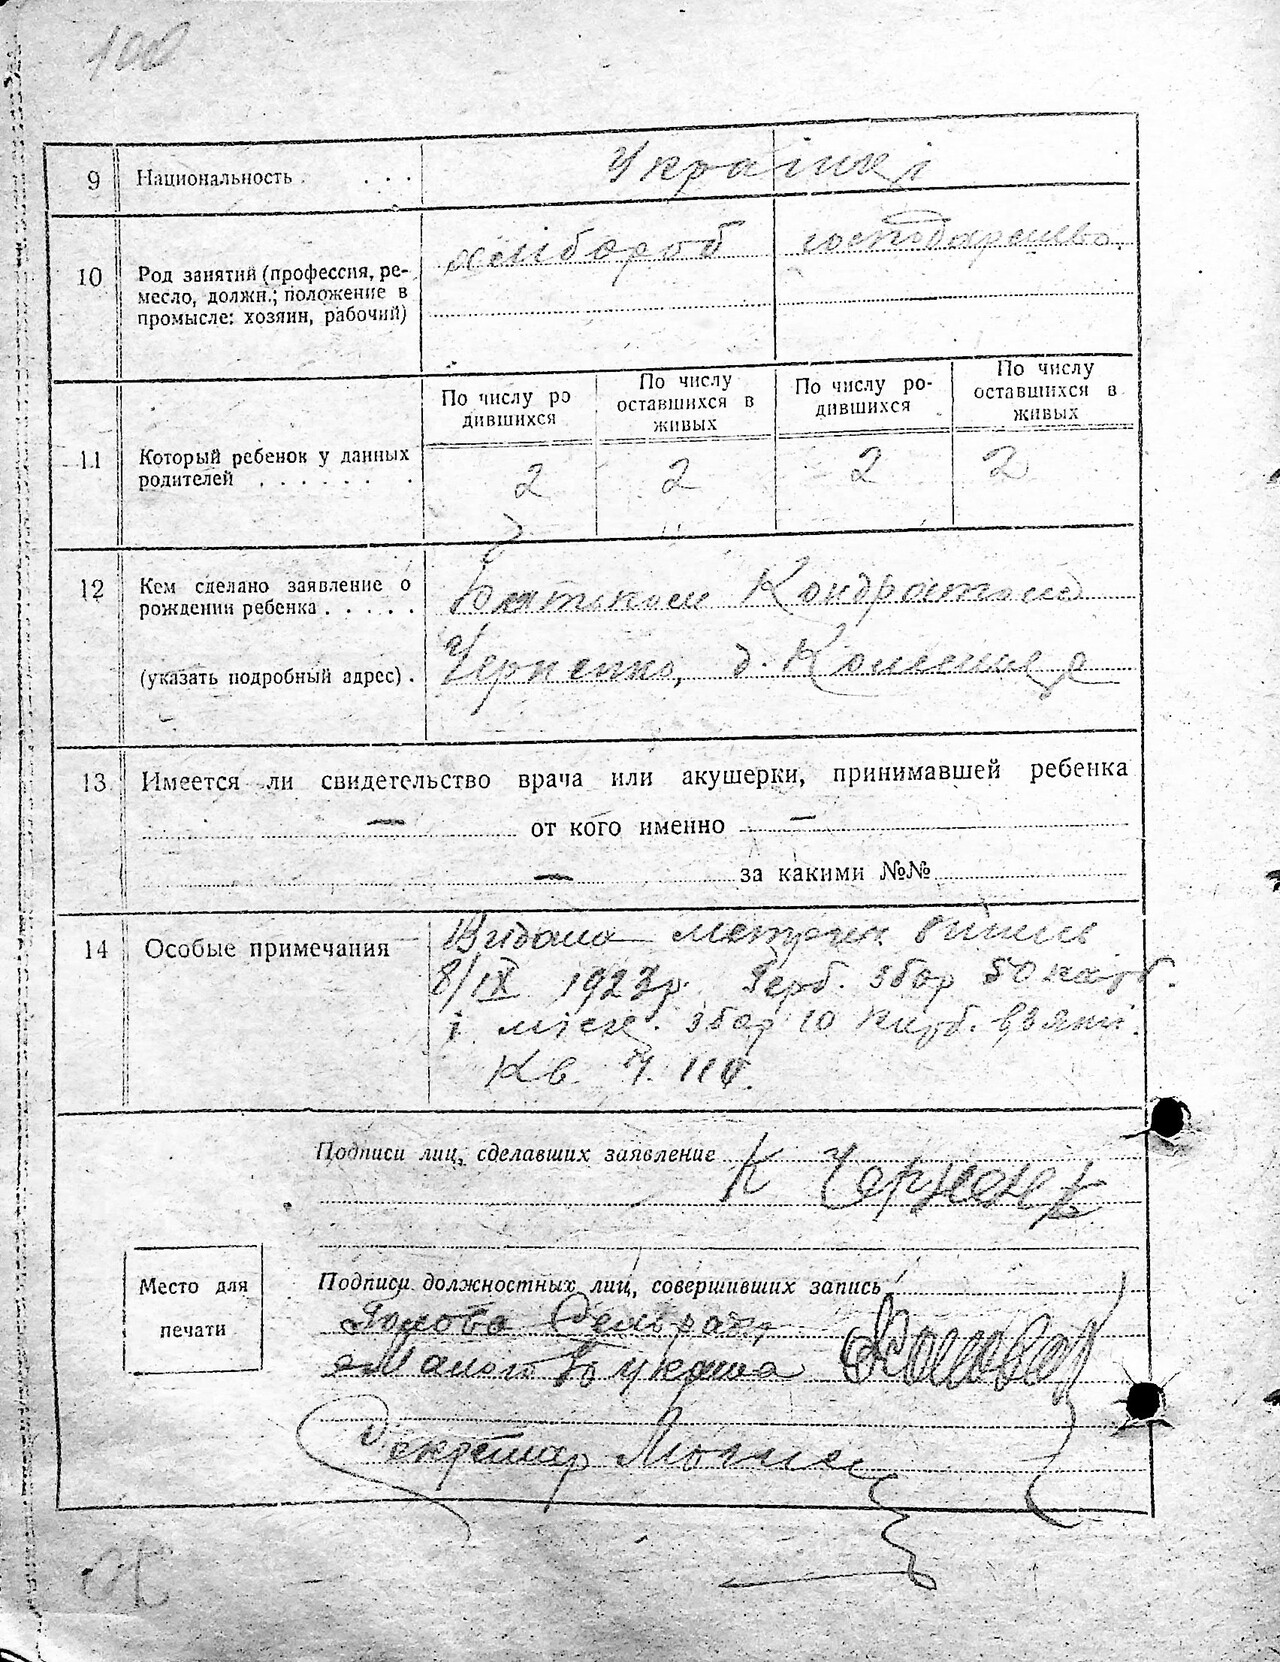 100
9 Национальность . . . . Українці
10 Род занятий (профессия, ре-
месло, должн.; положение в
промысле: хозяин, рабочий)
хлібороб господарство.
По числу ро
дившихся
По числу
оставшихся в
живых
По числу ро-
дившихся
По числу
оставшихся в
живых
11 Который ребенок у данных
родителей . . . . . . .
2 2 2 2
12 Кем сделано заявление о
рождении ребенка . . . . .
(указать подробный адрес) .
Батьком Кондратом
Черненко, д.
13 Имеется ли свидетельство врача или акушерки, принимавшей ребенка
— от кого именно —
— за какими №№
14 Особые примечания
Видана метричн випись
8/IX 1923р. Герб. збор 50 карб.
і міск. збор 10 карб. взяті.
Кв. Ч.
Подписи лиц, сделавших заявление К Черненк
Место для
печати
Подписи должностных лиц, совершивших запись
Голова Сельради
Малого Букаша
Секретар